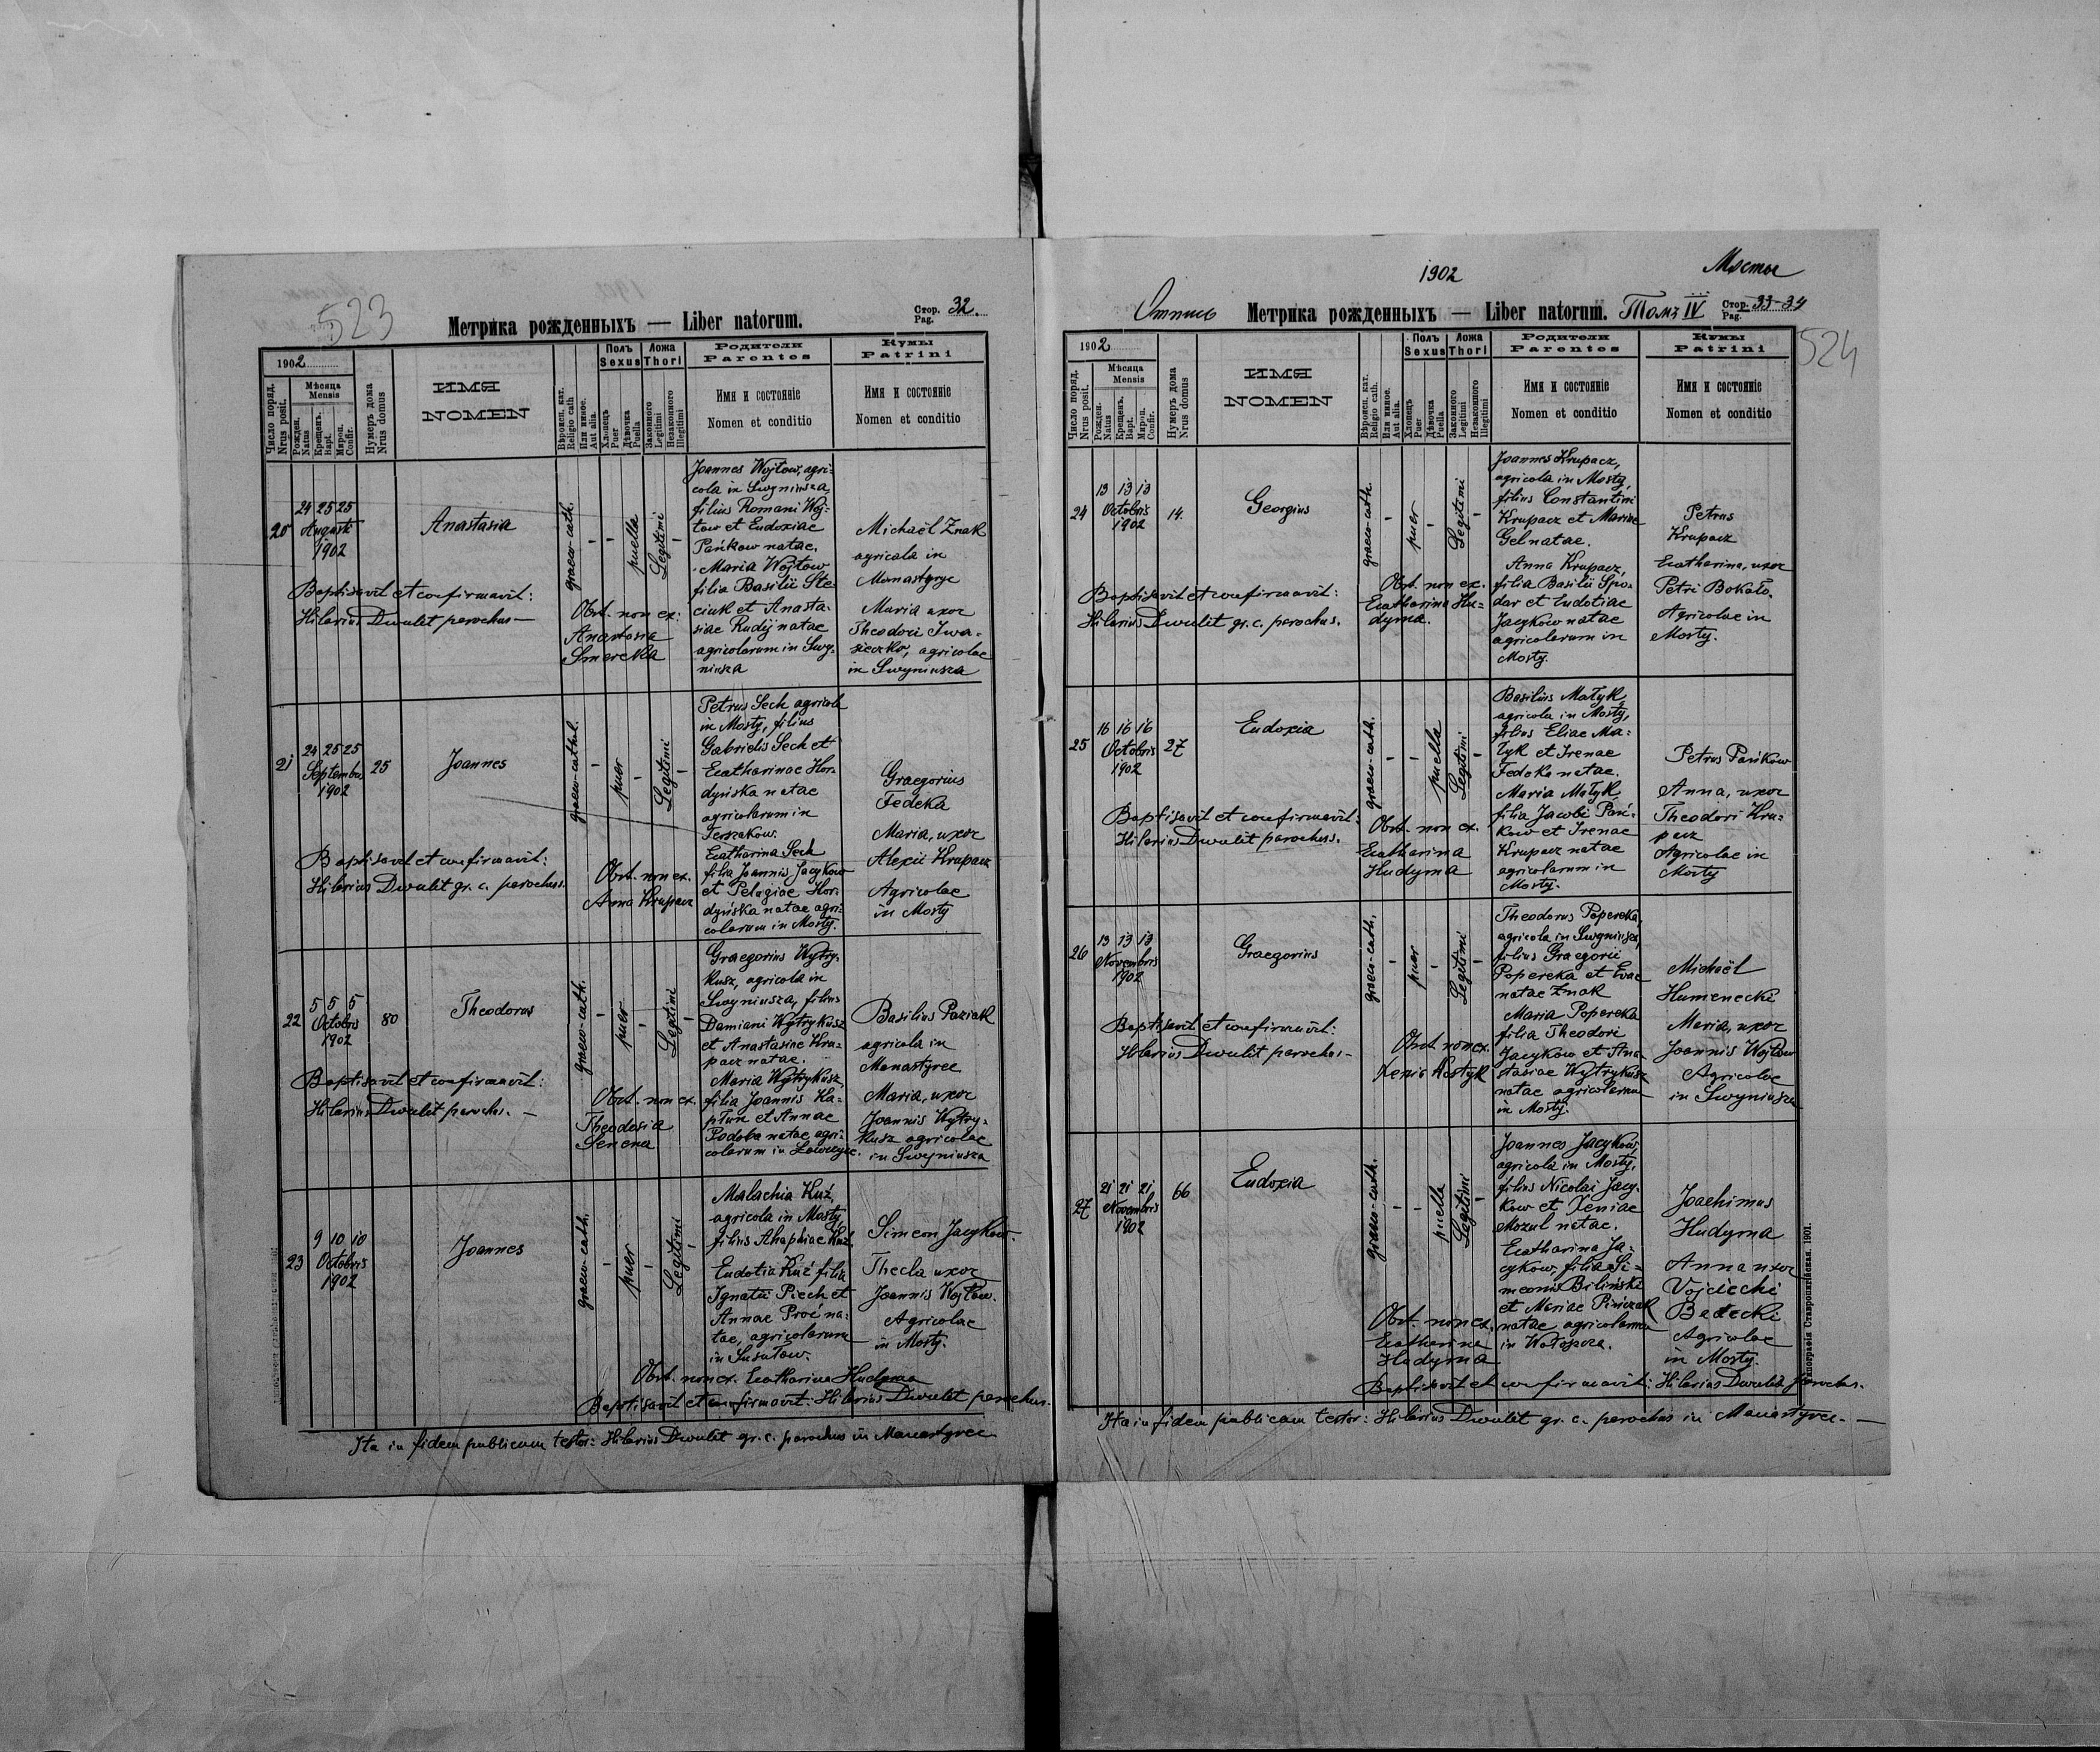 523
Метрика рожденныхъ — Liber natorum.
Стор. Pag. 32.
1902
Число поряд. Nrus posit.
Мѣсяца Mensis
Рожден. Natus
Крещенъ. Bapt.
Мироп. Confir.
Нумеръ дома Nrus domus
ИМЯ
NOMEN
Вѣроисп. кат. Religio cath
Или инное. Aut alia.
Полъ Sexus
Хлопецъ Puer
Дѣвочка Puella
Ложа Thori
Законного Legitimi
Незаконного Illegitimi
Родители
Parentes
Имя и состояніе
Nomen et conditio
Кумы
Patrini
Имя и состояніе
Nomen et conditio
20
24 25 25
Augusti
1902
Anastasia
graeco-cath.
-
-
puella
Legitimi
-
Joannes Wojtow, agri-
cola in Swyniusza,
filius Romani Woj-
tow et Eudoxiae
Pańkow natae.
Maria Wojtow
filia Basilii Ste-
ciuk et Anasta-
siae Rudyj natae
agricolarum in Swy-
niusza
Michaël Znak
agricola in
Monastyrje
Maria uxor
Theodori Iwa-
sieczko, agricolae
in Swyniusza
Baptisavit et confirmavit:
Hilarius Dwulit parochus —
Obst. non ex:
Anastasia
Smereka
21
24 25 25
Septembr.
1902
25
Joannes
graeco-cathol.
-
puer
-
Legitimi
-
Petrus Sech agricola
in Mosty, filius
Gabrielis Sech et
Ecatharinae Hor-
dyńska natae
agricolarum in
Terszakow.
Ecatharina Sech
filia Joannis Jacykow
et Pelagiae Hor-
dyńska natae agri-
colarum in Mosty.
Graegorius
Fedeka
Maria, uxor
Alexii Krupacz
Agricolae
in Mosty
Baptisavit et confirmavit:
Hilarius Dwulit gr. c. parochus.
Obst. non ex.
Anna Krupacz
22
5 5 5
Octobris
1902
80
Theodorus
graeco-cath.
-
puer
-
Legitimi
-
Graegorius Wytry-
kusz, agricola in
Swyniusza, filius
Damiani Wytrykusz
et Anastasiae Kru-
pacz natae.
Maria Wytrykusz,
filia Joannis Ka-
płun et Annae
Podoba natae agri-
colarum in
Basilius Paziak
agricola in
Monastyree
Maria, uxor
Joannis Wytry-
kusz agricolae
in Swyniusza
Baptisavit et confirmavit:
Hilarius Dwulit parochus. —
Obst. non ex.
Theodosia
Senena
23
9 10 10
Octobris
1902
Joannes
graeco-cath.
-
puer
-
Legitimi
-
Malachia Kuź,
agricola in Mosty
filius Ahaphiae Kuź.
Eudotia Kuź filia
Ignatii Piech et
Annae Proć na-
tae, agricolarum
in Susułow.
Simeon Jacykow
Thecla uxor
Joannis Wojtow.
Agricolae
in Mosty.
Obst. non ex. Ecatharina Hudyma
Baptisavit et confirmavit: Hilarius Dwulit parochus.
Ita in fidem publicam testor: Hilarius Dwulit gr. c. parochus in Monastyree
1902
Мосты
Отпись
Метрика рожденныхъ — Liber natorum. Томъ IV
Стор. Pag. 33-34
524
1902
Число поряд. Nrus posit.
Мѣсяца Mensis
Рожден. Natus
Крещенъ. Bapt.
Мироп. Confir.
Нумеръ дома Nrus domus
ИМЯ
NOMEN
Вѣроисп. кат. Religio cath.
Или инное. Aut alia.
Полъ Sexus
Хлопецъ Puer
Дѣвочка Puella
Ложа Thori
Законного Legitimi
Незаконного Illegitimi
Родители
Parentes
Имя и состояніе
Nomen et conditio
Кумы
Patrini
Имя и состояніе
Nomen et conditio
24
13 13 13
Octobris
1902
14.
Georgius
graeco-cath.
-
puer
-
Legitimi
-
Joannes Krupacz,
agricola in Mosty,
filius Constantini
Krupacz et Mariae
Gel natae.
Anna Krupacz,
filia Basilii Spo-
dar et Eudotiae
Jacykow natae
agricolarum in
Mosty.
Petrus
Krupacz
Ecatharina, uxor
Petri Bokało.
Agricolae in
Mosty.
Baptisavit et confirmavit:
Hilarius Dwulit gr. c. parochus.
Obst. non ex.
Ecatharina Hu-
dyma.
25
16 16 16
Octobris
1902
27
Eudoxia
graeco-cath.
-
-
puella
Legitimi
-
Basilius Matyk,
agricola in Mosty,
filius Eliae Ma-
tyk et Irenae
Fedeka natae.
Maria Matyk,
filia Jacobi Pań-
kow et Irenae
Krupacz natae
agricolarum in
Mosty.
Petrus Pańkow
Anna, uxor
Theodori Kru-
pacz
Agricolae in
Mosty
Baptisavit et confirmavit:
Hilarius Dwulit parochus.
Obst. non ex.
Ecatharina
Hudyma
26
13 13 13
Novembris
1902
Graegorius
graeco-cath.
-
puer
-
Legitimi
-
Theodorus Popereka,
agricola in Swyniusza,
filius Graegorii
Popereka et Evae
natae Znak
Maria Popereka
filia Theodori
Jacykow et Ana-
stasiae Wytrykusz
natae agricolarum
in Mosty.
Michaël
Humenecki
Maria, uxor
Joannis Wojtow
Agricolae
in Swyniusza
Baptisavit et confirmavit:
Hilarius Dwulit parochus —
Obst. non ex.
Xenia Kostyk
27
21 21 21
Novembris
1902
66
Eudoxia
graeco-cath.
-
-
puella
Legitimi
-
Joannes Jacykow,
agricola in Mosty,
filius Nicolai Jacy-
kow et Xeniae
Mozul natae.
Ecatharina Ja-
cykow, filia Si-
meonis Biliński
et Mariae Pińczak
natae agricolarum
in Wołoszcza.
Joachimus
Hudyma
Anna uxor
Vojciechi
Badecki
Agricolae
in Mosty.
Obst. non ex.
Ecatharina
Hudyma
Baptisavit et confirmavit: Hilarius Dwulit parochus.
Ita in fidem publicam testor: Hilarius Dwulit gr. c. parochus in Monastyree. —
Типографія Ставропигійская. 1901.